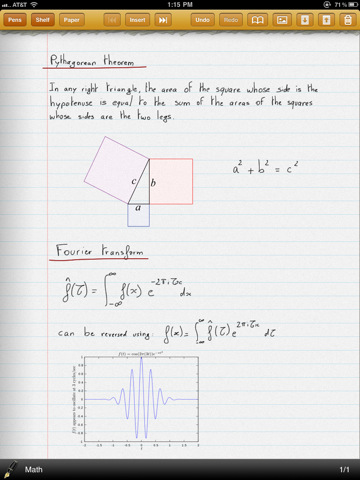 AT&T 1:15 PM 71%
Pens Shelf Paper Insert Undo Redo
Pythagorean theorem
In any right triangle, the area of the square whose side is the
hypotenuse is equal to the sum of the areas of the squares
whose sides are the two legs.
c b
a
a² + b² = c²
Fourier transform
f̂(τ) = ∫_{-∞}^{∞} f(x) e^{-2πiτx} dx
can be reversed using: f(x) = ∫_{-∞}^{∞} f̂(τ) e^{2πiτx} dτ
Math 1/1